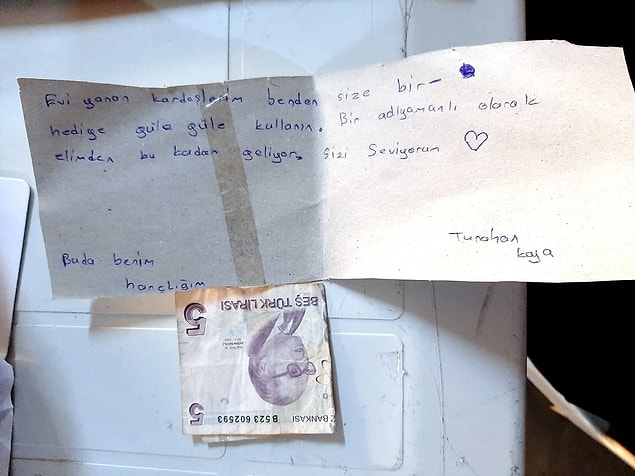 Evi yanan kardeşlerim benden size bir-
hediye güle güle kullanın. Bir adıyamanlı olarak
elimden bu kadar geliyor. Sizi Seviyorum ♡
Turahan
kaya
Buda benim
harçlığım
BEŞ TÜRK LİRASI
5
5
B523 602593
BANKASI